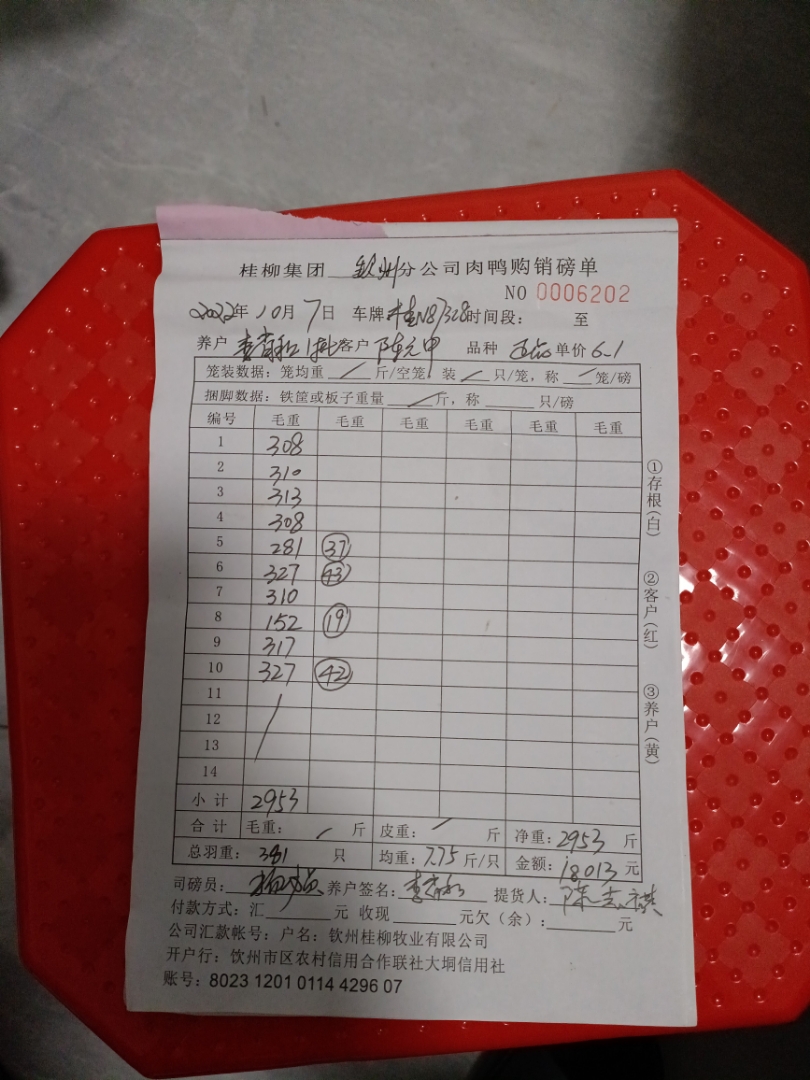 桂柳集团 钦州分公司肉鸭购销磅单
NO 0006202
2022年10月7日 车牌 桂N87328 时间段： 至
养户 客户 陈元甲 品种 单价 6.1
笼装数据：笼均重 / 斤/空笼，装 / 只/笼，称 / 笼/磅
捆脚数据：铁筐或板子重量 / 斤，称 只/磅
编号 毛重 毛重 毛重 毛重 毛重 毛重
1 308
2 310
3 313
4 308
5 281 37
6 327 43
7 310
8 152 19
9 317
10 327 42
11
12
13
14
小计 2953
合计 毛重： / 斤 皮重： / 斤 净重：2953 斤
总羽重：381 只 均重：7.75 斤/只 金额：18013 元
司磅员： 养户签名： 提货人：
付款方式：汇 元 收现 元欠（余）： 元
公司汇款帐号：户名：钦州桂柳牧业有限公司
开户行：钦州市区农村信用合作联社大垌信用社
账号：8023 1201 0114 4296 07
①存根（白）
②客户（红）
③养户（黄）